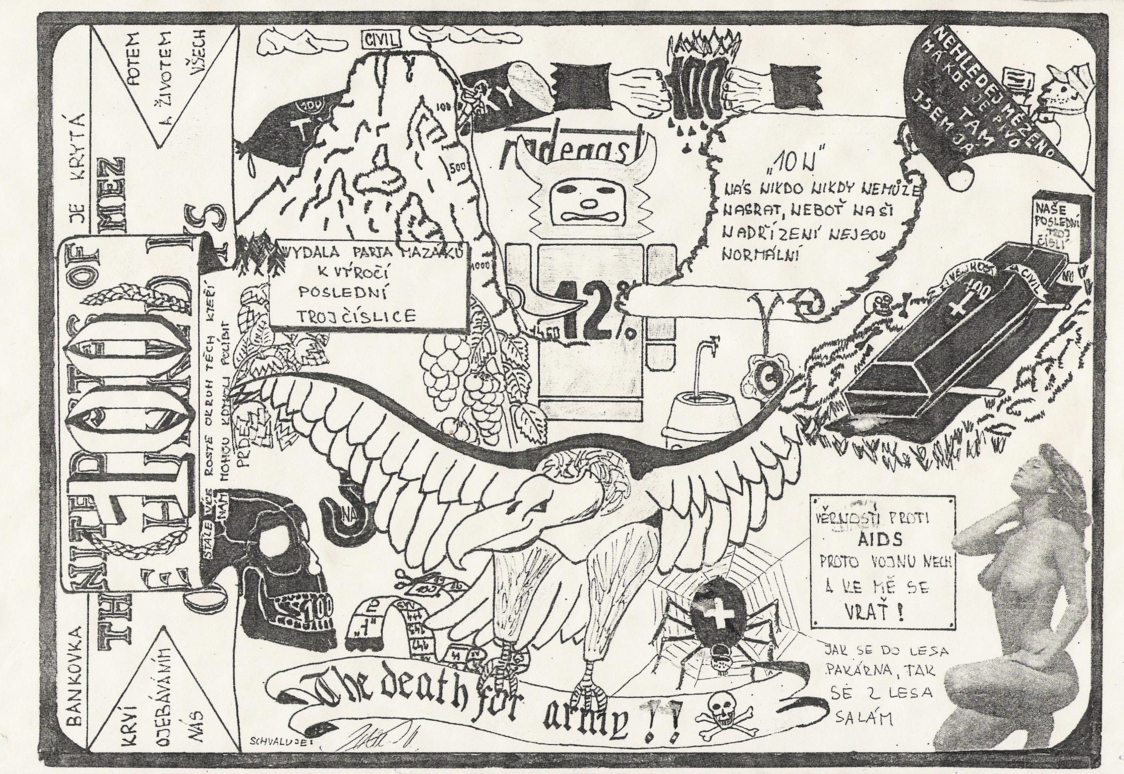 BANKOVKA JE KRYTÁ
POTEM
A ŽIVOTEM
VŠECH
KRVÍ
OJEBÁVÁNÍM
NÁS
THE UNITED POUNDS OF
100
STÁLE VÍCE ROSTE OKRUH TĚCH, KTEŘÍ
NÁM MOHOU KDYKOLI POLÍBIT
PRDEL
CIVIL
100
500
1000
VYDALA PARTA MAZÁKŮ
K VÝROČÍ
POSLEDNÍ
TROJČÍSLICE
100
radegast
12%
„10 N"
NÁS NIKDO NIKDY NEMŮŽE
NASRAT, NEBOŤ NAŠI
NADŘÍZENÍ NEJSOU
NORMÁLNÍ
NEHLEDEJ MĚ ŽENO
NA KDE JE PIVO
TAM
JSEM JÁ
NAŠE
POSLEDNÍ
TROJ
ČÍSLÍ
100
CIVIL
G
NA
100
VĚRNOSTÍ PROTI
AIDS
PROTO VOJNU NECH
A KE MĚ SE
VRAŤ!
JAK SE DO LESA
PAKÁRNA, TAK
SE Z LESA
SALÁM
The death for army !!
SCHVALUJE: